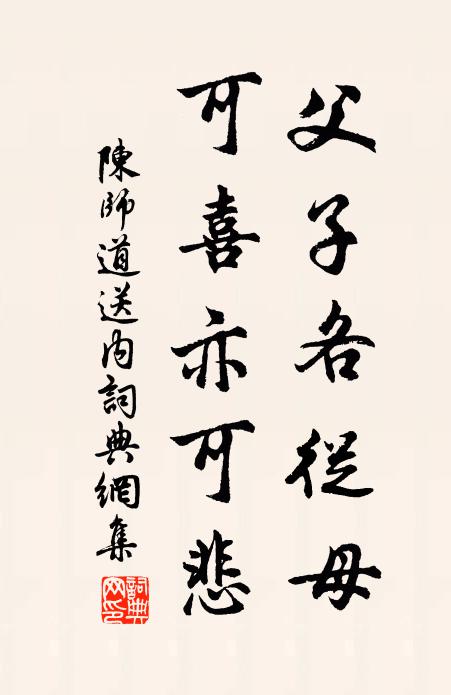 父子各從母
可喜亦可悲
陳師道送内詞典網集
詞典網印